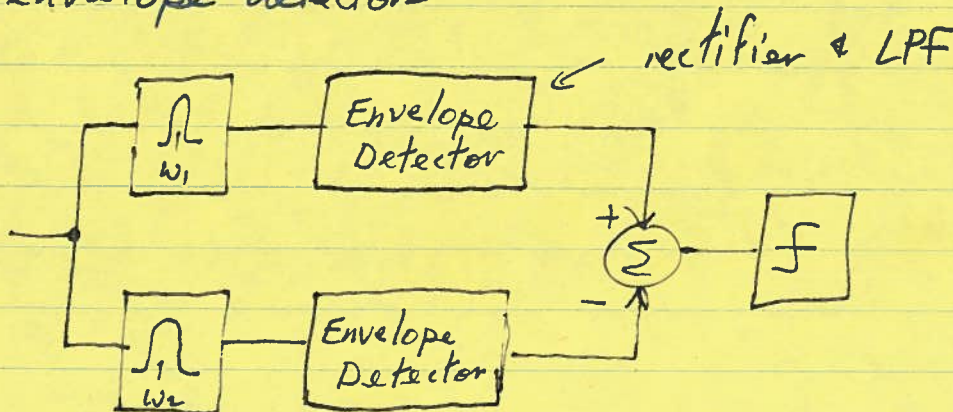 envelope detector
rectifier & LPF
ω₁
Envelope
Detector
+
Σ
-
ω₂
Envelope
Detector